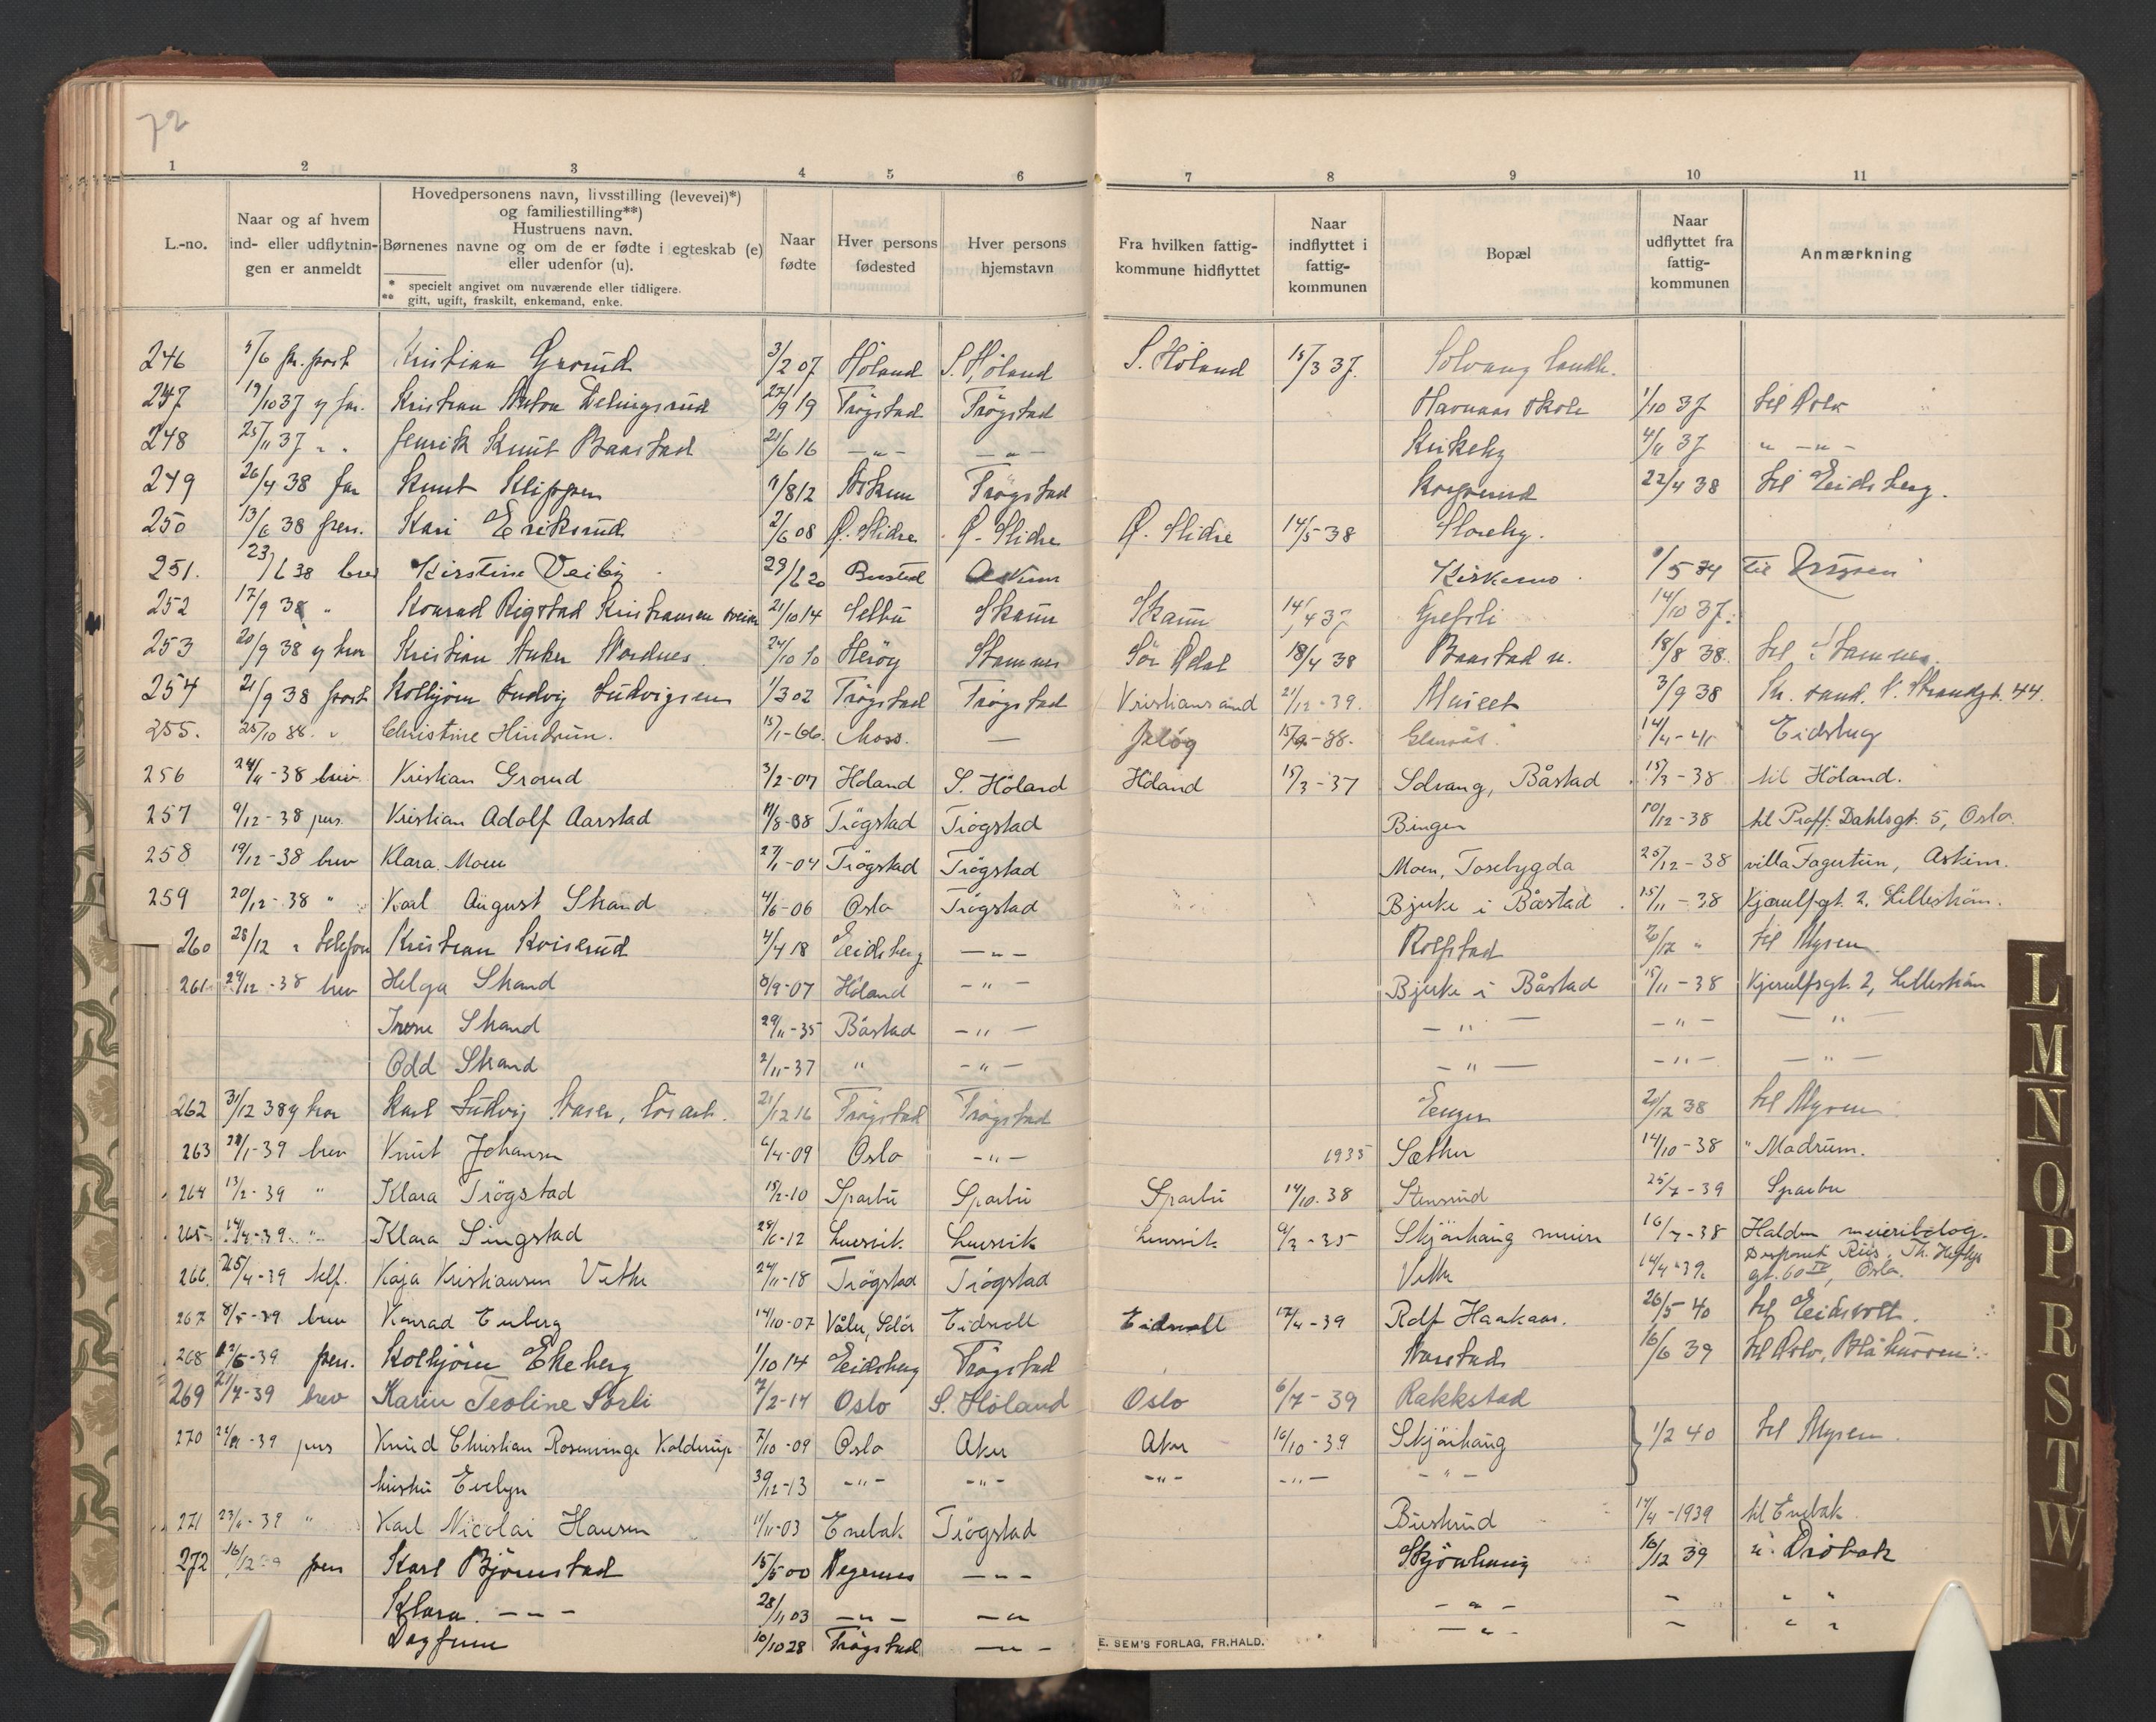 72
1 2 3 4 5 6 7 8 9 10 11
L.-no.
Naar og af hvem
ind- eller udflytnin-
gen er anmeldt
Hovedpersonens navn, livsstilling (levevei)*)
og familiestilling**)
Hustruens navn.
Børnenes navne og om de er fødte i egteskab (e)
eller udenfor (u).
* specielt angivet om nuværende eller tidligere.
** gift, ugift, fraskilt, enkemand, enke.
Naar
fødte
Hver persons
fødested
Hver persons
hjemstavn
Fra hvilken fattig-
kommune hidflyttet
Naar
indflyttet i
fattig-
kommunen
Bopæl
Naar
udflyttet fra
fattig-
kommunen
Anmærkning
246 5/6 pr. post Kristian Grorud 3/2 07 Höland S. Höland S. Höland 15/3 37. Solvang landh.
247 19/10 37 Kristian Anton 27/9 19 Trögstad Trögstad Havnaas skole 1/10 37 til Oslo
248 25/11 37 " " Henrik Knut Baastad 21/6 16 - " - - " - Kirkeby 4/11 37 " - " -
249 26/4 38 Knut Klippen 1/8 12 Askim Trögstad 22/4 38 til Eidsberg.
250 13/6 38 pers. Kari Eriksrud 2/6 08 Ø. Slidre Ø. Slidre Ø. Slidre 14/5-38 Storeby.
251. 23/6 38 brev Kirstine Veiby 29/6 20 Askim Kirkemo
252 17/9 38 " Konrad Rigstad Kristiansen 21/10 14 Selbu Skaun Skaun 14/4 37 Grefsli 14/10 37.
253 20/9 38 Kristian Anker Nordnes 24/10 10 Heröy Stamnes Sör Odal 18/4 38 Baastad n. 18/8 38. til Stamnes.
254 21/9 38 post Kolbjörn Ludvig Ludvigsen 1/3 02 Trögstad Trögstad Kristiansand 21/12-39. 3/9 38 Kr. sand. V. Strandgt. 44.
255. 25/10 88. " Christine Hindrum. 15/1-66. Moss. — Jelöy 15/9-88. 14/4-41 Eidsberg
256 24/11-38 brev Kristian Grorud 3/2-07 Höland S. Höland Höland 15/3-37 Solvang, Båstad 15/3-38 til Höland.
257 9/12-38 pers. Kristian Adolf Aarstad 11/8-38 Trögstad Trögstad Bingen 10/12-38 til Proff. Dahlsgt. 5, Oslo.
258 19/12-38 brev Klara Moen 27/1-04 Trögstad Trögstad Moen, Tosebygda 25/12-38 villa Fagertun, Askim.
259 20/12-38 " Karl August Strand 4/6-06 Oslo Trögstad Bjerke i Båstad 15/11-38 Kjerulfsgt. 2, Lilleström.
260 28/12 " telefon Kristian Kviserud 4/4 18 Eidsberg - " - Rolfstad 20/12 " til Mysen
261. 29/12-38 brev Helga Strand 8/9-07 Höland - " - Bjerke i Båstad 15/11-38 Kjerulfsgt. 2, Lilleström
Irene Strand 29/11-35 Båstad - " - - " - - " - - " -
Odd Strand 2/11-37 " - " - - " - - " - - " -
262 31/12 38 Karl Ludvig 21/12 16 Trögstad Trögstad Eengen 21/12 38 til Mysen
263 28/1-39 brev Knut Johansen 6/4-09 Oslo - " - 1935 Sæther 14/10-38 " Modrum.
264 13/2-39 " Klara Trögstad 15/2-10 Sparbu Sparbu Sparbu 14/10. 38 Stensrud 25/7-39 Sparbu
265 14/4-39 " Klara Singstad 28/6-12 Lensvik Lensvik Lensvik 9/3-35 Skjönhaug meieri 16/7-38 Halden meieribolag.
266. 25/4-39 telf. Kaja Kristiansen Vethe 24/11-18 Trögstad Trögstad Vethe 14/4-39 Disponent Riis, Th. Heftyes gt. 60 IV, Oslo.
267 8/5-39 brev Konrad Enberg 14/10-07 Våler, Solör Eidsvoll Eidsvoll 17/4-39 Rolf Haakaas. 26/5-40 til Eidsvoll.
268 12/5-39 pers. Kolbjörn Ekeberg 1/10 14 Eidsberg Trögstad 16/6 39 til Oslo,
269 21/7-39 brev Karin Teoline Sörli 7/2-14 Oslo S. Höland Oslo 6/7-39 Rakkstad
270 22/11-39 pers Knud Christian Rosenvinge Kolderup 7/10-09 Oslo Aker Aker 16/10-39 Skjönhaug 1/2 40 til Mysen.
hustru Evelyn 30/12-13 - " - - " - - " - - " - - " -
271 23/11-39 " Karl Nicolai Hansen 11/11-03 Enebak Trögstad Buskrud 14/4-1939 til Enebak
272 16/12 39 pers Karl Björnstad 15/5 00 Degernes - " - Skjönhaug 16/12 39 " Dröbak
Klara - " - 28/11 03 - " - - " - " - " "
Dagfinn 10/10 28 Trögstad - " - - " - - " "
E. SEM'S FORLAG, FR.HALD.
L
M
N
O
P
R
S
T
W